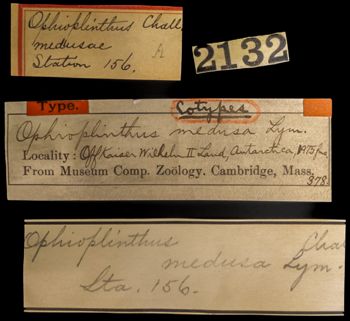 Ophioplinthus Chall.
medusae
Station 156.
A
2132
Type.
Cotypes
Ophioplinthus medusa Lym.
Locality: Off Kaiser Wilhelm II Land, Antarctica, 1975 fms
From Museum Comp. Zoölogy. Cambridge, Mass.
378.
Ophioplinthus Chal
medusa Lym.
Sta. 156.